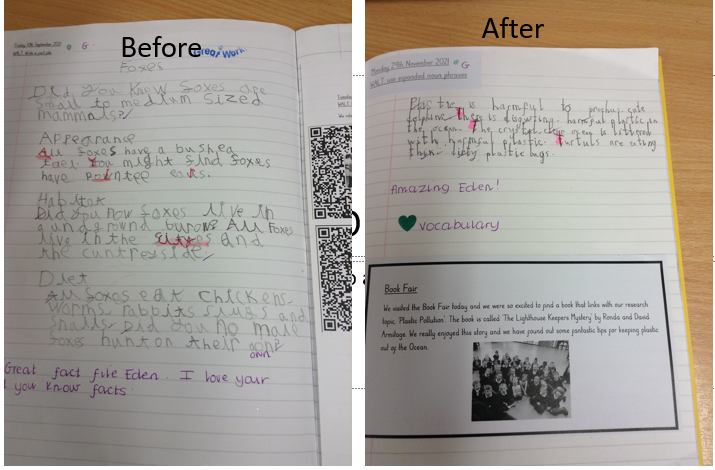 Before
Great Work
WALT: Write a fact file
Foxes
Did you know foxes are
small to medium sized
mammals?
Appearance
All foxes have a bushea
tael. You might find foxes
have pointee ears.
Habitat
Did you now foxes live in
underground burows All foxes
live in the sityes and
the cuntreyside
Diet
All foxes eat chickens
worms rabbits slugs and
snails. Did you no male
foxes hunt on their
own
Great fact file Eden. I love your
you know facts.
After
G
Monday 29th November 2021
WALT: use expanded noun phrases
is harmful to
dolphins. There is disgusting. harmful plastic in
the ocean. The crystal clear ocean is littered
with harmful plastic. Turtuls are eating
dirty plastic bags.
Amazing Eden!
vocabulary
Book Fair
We visited the Book Fair today and we were so excited to find a book that links with our research
topic 'Plastic Pollution'. The book is called 'The Lighthouse Keepers Mystery' by Ronda and David
Armitage. We really enjoyed this story and we have found out some fantastic tips for keeping plastic
out of the Ocean.